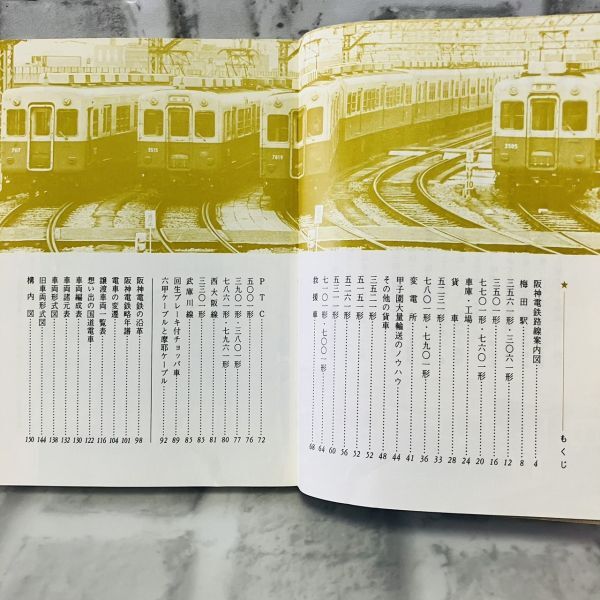 ★
もくじ
阪神電鉄路線案内図 4
梅田駅 8
三五六一形・三〇六一形 12
三五〇一形 16
七七〇一形・七六〇一形 20
車庫・工場 24
貨車 28
五二三一形 33
七八〇一形・七九〇一形 36
変電所 41
甲子園大量輸送のノウハウ 44
その他の貨車 48
三五二一形 52
五一五一形 52
五二六一形 56
五三一一形 60
七一〇一形・七〇〇一形 64
救援車 68
PTC 72
五〇〇一形 76
三九〇一形・三八〇一形 77
七八六一形・七九六一形 80
西大阪線 81
三三〇一形 85
武庫川線 85
回生ブレーキ付チョッパ車 89
六甲ケーブルと摩耶ケーブル 92
阪神電鉄の沿革 98
阪神電鉄略年譜 101
電車の変遷 104
譲渡車両一覧表 116
想い出の国道電車 122
車両編成表 130
車両諸元表 132
車両形式図 138
旧車両形式図 144
構内図 150
717
3515
7819
3505
10